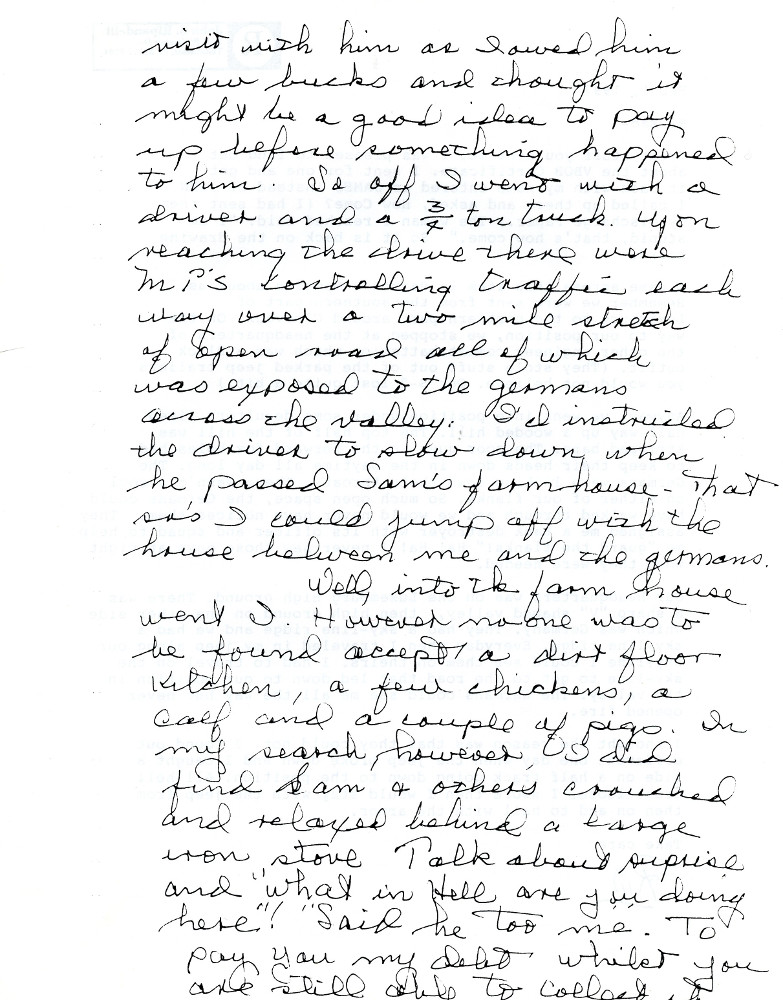 visit with him as I owed him
a few bucks and thought it
might be a good idea to pay
up before something happened
to him. So off I went with a
driver and a 3/4 ton truck. Upon
reaching the drive there were
MP's controlling traffic each
way over a two mile stretch
of open road all of which
was exposed to the germans
across the valley. I'd instructed
the driver to slow down when
he passed Sam's farmhouse - That
so's I could jump off with the
house between me and the germans.
Well, into the farm house
went I. However no one was to
be found accept a dirt floor
kitchen, a few chickens, a
calf and a couple of pigs. In
my search, however, I did
find Sam & others crouched
and relaxed behind a large
iron stove Talk about suprise
and "what in Hell are you doing
here"! "Said he too me. To
pay you my debt whilst you
are still able to collect it